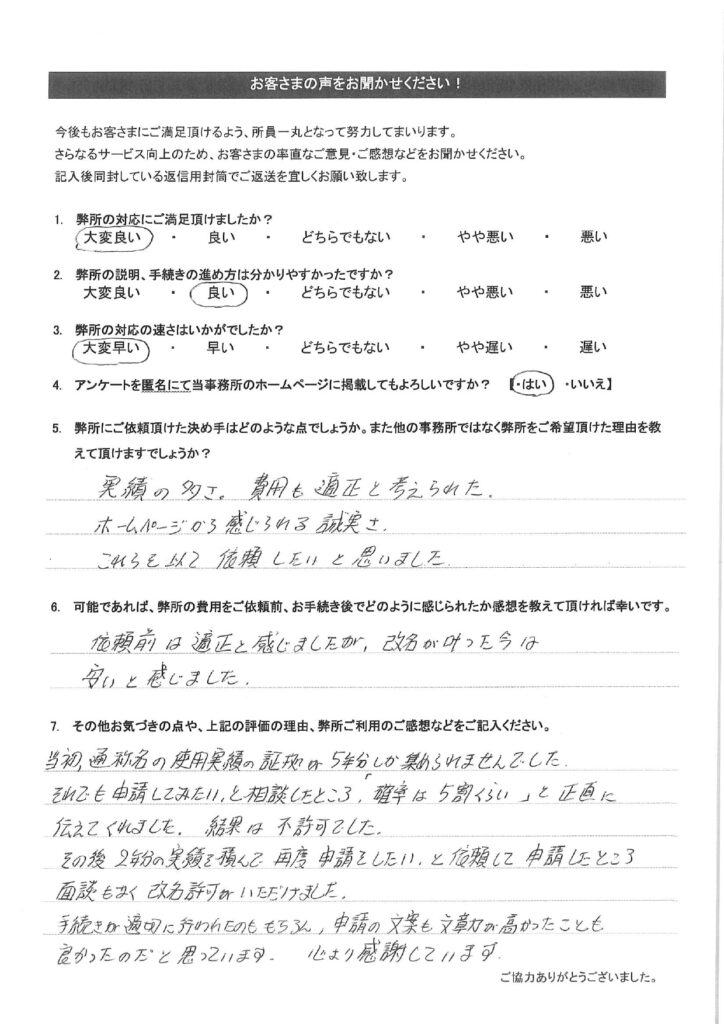 お客さまの声をお聞かせください！
今後もお客さまにご満足頂けるよう、所員一丸となって努力してまいります。
さらなるサービス向上のため、お客さまの率直なご意見・ご感想などをお聞かせください。
記入後同封している返信用封筒でご返送を宜しくお願い致します。
1. 弊所の対応にご満足頂けましたか？
大変良い ・ 良い ・ どちらでもない ・ やや悪い ・ 悪い
2. 弊所の説明、手続きの進め方は分かりやすかったですか？
大変良い ・ 良い ・ どちらでもない ・ やや悪い ・ 悪い
3. 弊所の対応の速さはいかがでしたか？
大変早い ・ 早い ・ どちらでもない ・ やや遅い ・ 遅い
4. アンケートを匿名にて当事務所のホームページに掲載してもよろしいですか？ 【・はい ・いいえ】
5. 弊所にご依頼頂けた決め手はどのような点でしょうか。また他の事務所ではなく弊所をご希望頂けた理由を教
えて頂けますでしょうか？
実績の多さ。費用も適正と考えられた.
ホームページから感じられる誠実さ.
これらを以て依頼したいと思いました.
6. 可能であれば、弊所の費用をご依頼前、お手続き後でどのように感じられたか感想を教えて頂ければ幸いです。
依頼前は適正と感じましたが, 改名が叶った今は
安いと感じました.
7. その他お気づきの点や、上記の評価の理由、弊所ご利用のご感想などをご記入ください。
当初, 通称名の使用実績の証拠が5年分しか集められませんでした.
それでも申請してみたい, と相談したところ,「確率は5割くらい」と正直に
伝えてくれました. 結果は不許可でした.
その後2年分の実績を積んで再度申請をしたい, と依頼して申請したところ
面談もなく改名許可がいただけました.
手続きが適切に行われたのももちろん, 申請の文案も文章力が高かったことも
良かったのだと思っています. 心より感謝しています.
ご協力ありがとうございました。